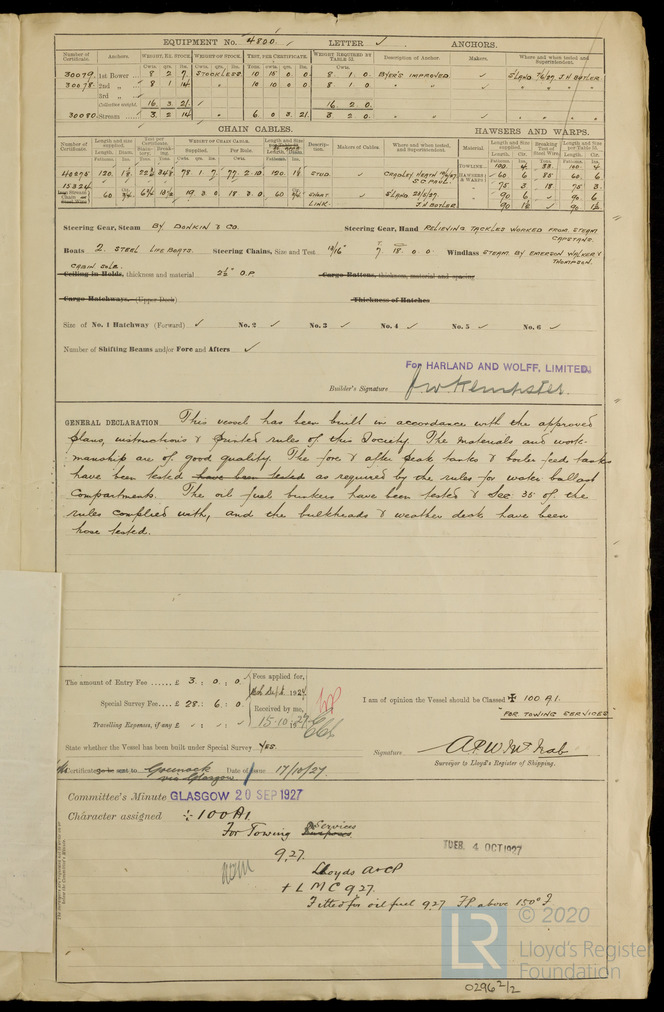 EQUIPMENT No. 4800. LETTER ✓ ANCHORS.
Number of Certificate. Anchors. WEIGHT, EX. STOCK. WEIGHT OF STOCK. TEST, PER CERTIFICATE. WEIGHT REQUIRED BY TABLE 53. Description of Anchor. Makers. Where and when tested and Superintendent.
Cwts. qrs. lbs. Cwts. qrs. lbs. Tons. cwts. qrs. lbs. Cwts.
30079 1st Bower 8 2 7 STOCKLESS 10 15 0 0 8 1 0 BYER'S IMPROVED ✓ S'LAND 7/6/27. J.H. BUTLER
30078 2nd „ 8 1 14 " 10 10 0 0 8 1 0 " " " "
3rd „
Collective weight. 16 3 21 ✓ 16 2 0
30080 Stream 3 2 14 " 6 0 3 21 3 2 0 " " " "
CHAIN CABLES. HAWSERS AND WARPS.
Number of Certificate. Length and size supplied. Test per Certificate. WEIGHT OF CHAIN CABLE. Length and Size Description. Makers of Cables. Where and when tested, and Superintendent. Material. Length and size supplied. Breaking Test of Steel Wire. Length and size per Table 53.
Supplied. Per Rule.
TOWLINE 100 4 33 100 4
40075 120 22½ 34⅛ 78 1 7 77 2 10 120 STUD ✓ CRADLEY HEATH HAWSERS & WARPS 60 6 85 60 6
15324 S.C. PAUL " 75 3 18 75 3
60 19 3 0 18 3 0 60 SHORT LINK ✓ S'LAND J.H. BUTLER " 90 6 ✓ 90 6
" 90 ✓ 90
Steering Gear, Steam BY DONKIN & CO. Steering Gear, Hand RELIEVING TACKLES WORKED FROM STEAM CAPSTANS.
Boats 2. STEEL LIFEBOATS. Steering Chains, Size and Test 15/16" 7. 18. 0 0 Windlass STEAM BY EMERSON WALKER & THOMPSON.
CABIN SOLE.
Ceiling in Holds, thickness and material 2½" O.P. Cargo Battens, thickness, material and spacing
Cargo Hatchways. (Upper Deck) Thickness of Hatches
Size of No. 1 Hatchway (Forward) ✓ No. 2 ✓ No. 3 ✓ No. 4 ✓ No. 5 ✓ No. 6 ✓
Number of Shifting Beams and/or Fore and Afters ✓
For HARLAND AND WOLFF, LIMITED.
Builder's Signature J W Kempster.
GENERAL DECLARATION This vessel has been built in accordance with the approved
plans, instructions & printed rules of this Society. The materials and work-
manship are of good quality. The fore & after peak tanks & boiler feed tanks
have been tested have been tested as required by the rules for water ballast
compartments. The oil fuel bunkers have been tested & Sec 35 of the
rules complied with, and the bulkheads & weather deck have been
hose tested.
The amount of Entry Fee ...... £ 3 : 0 : 0 Fees applied for,
Sept. 1927
Special Survey Fee.... £ 28 : 6 : 0 Received by me,
Travelling Expenses, if any £ 15.10.27
I am of opinion the Vessel should be Classed ✠ 100 A1.
FOR TOWING SERVICES
State whether the Vessel has been built under Special Survey Yes.
Signature A.P.W. McNab
Surveyor to Lloyd's Register of Shipping.
Certificate to be sent to Greenock via Glasgow Date of issue 17/10/27.
Committee's Minute GLASGOW 20 SEP 1927
Character assigned + 100 A1
For Towing Services
9,27.
TUES. 4 OCT 1927
Lloyds A & CP
+ L M C 9 27.
Fitted for oil fuel 9,27 FP above 150° F
LR
© 2020
Lloyd's Register
Foundation
0296 2/2